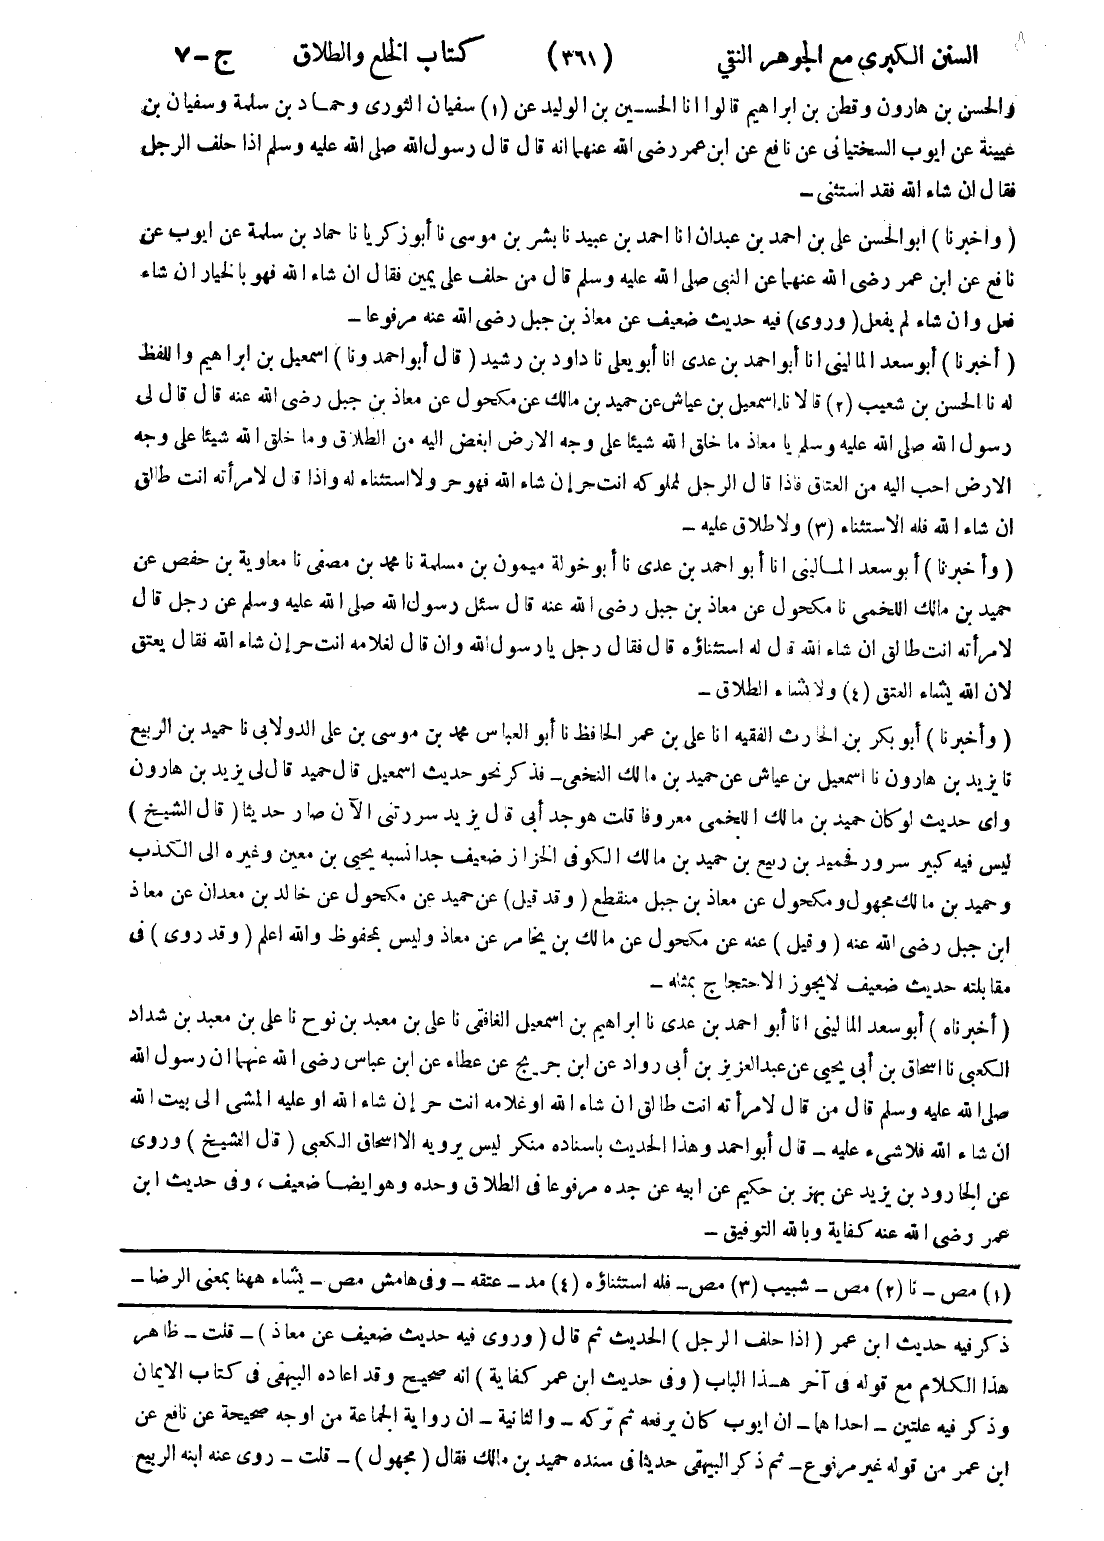 السنن الكبرى مع الجوهر النقي (٣٦١) كتاب الخلع والطلاق ج-٧
والحسن بن هارون وقطن بن ابراهيم قالوا انا الحسين بن الوليد عن (١) سفيان الثورى وحماد بن سلمة وسفيان بن
عيينة عن ايوب السختيانى عن نافع عن ابن عمر رضى الله عنهما انه قال قال رسول الله صلى الله عليه وسلم اذا حلف الرجل
فقال ان شاء الله فقد استثنى ـ
( واخبرنا ) ابو الحسن على بن احمد بن عبدان انا احمد بن عبيد نا بشر بن موسى نا أبو زكريا نا حماد بن سلمة عن ايوب عن
نافع عن ابن عمر رضى الله عنهما عن النبى صلى الله عليه وسلم قال من حلف على يمين فقال ان شاء الله فهو بالخيار ان شاء
فعل وان شاء لم يفعل ( وروى ) فيه حديث ضعيف عن معاذ بن جبل رضى الله عنه مرفوعا ـ
( أخبرنا ) أبو سعد المالينى انا أبو احمد بن عدى انا أبو يعلى نا داود بن رشيد ( قال أبو احمد ونا ) اسمعيل بن ابراهيم واللفظ
له نا الحسن بن شعيب (٢) قالا نا اسمعيل بن عياش عن حميد بن مالك عن مكحول عن معاذ بن جبل رضى الله عنه قال قال لى
رسول الله صلى الله عليه وسلم يا معاذ ما خلق الله شيئا على وجه الارض ابغض اليه من الطلاق وما خلق الله شيئا على وجه
الارض احب اليه من العتاق فاذا قال الرجل لمملوكه انت حر إن شاء الله فهو حر ولا استثناء له واذا قال لامرأته انت طالق
ان شاء الله فله الاستثناء (٣) ولا طلاق عليه ـ
( وأخبرنا ) أبو سعد المالينى انا أبو احمد بن عدى نا أبو خولة ميمون بن مسلمة نا محمد بن مصفى نا معاوية بن حفص عن
حميد بن مالك اللخمى نا مكحول عن معاذ بن جبل رضى الله عنه قال سئل رسول الله صلى الله عليه وسلم عن رجل قال
لامرأته انت طالق ان شاء الله قال له استثناؤه قال فقال رجل يا رسول الله وان قال لغلامه انت حر إن شاء الله فقال يعتق
لان الله يشاء العتق (٤) ولا يشاء الطلاق ـ
( وأخبرنا ) أبو بكر بن الحارث الفقيه انا على بن عمر الحافظ نا أبو العباس محمد بن موسى بن على الدولابى نا حميد بن الربيع
نا يزيد بن هارون نا اسمعيل بن عياش عن حميد بن مالك النخعى ـ فذكر نحو حديث اسمعيل قال حميد قال لى يزيد بن هارون
واى حديث لو كان حميد بن مالك اللخمى معروفا قلت هو جد أبى قال يزيد سررتنى الآن صار حديثا ( قال الشيخ )
ليس فيه كبير سرور فحميد بن ربيع بن حميد بن مالك الكوفى الخزاز ضعيف جدا نسبه يحيى بن معين وغيره الى الكذب
وحميد بن مالك مجهول ومكحول عن معاذ بن جبل منقطع ( وقد قيل ) عن حميد عن مكحول عن خالد بن معدان عن معاذ
ابن جبل رضى الله عنه ( وقيل ) عنه عن مكحول عن مالك بن يخامر عن معاذ وليس بمحفوظ والله اعلم ( وقد روى ) فى
مقابلته حديث ضعيف لايجوز الاحتجاج بمثله ـ
( أخبرناه ) أبو سعد المالينى انا أبو احمد بن عدى نا ابراهيم بن اسمعيل الغافقى نا على بن معبد بن نوح نا على بن معبد بن شداد
الكعبى نا اسحاق بن أبى يحيى عن عبد العزيز بن أبى رواد عن ابن جريج عن عطاء عن ابن عباس رضى الله عنهما ان رسول الله
صلى الله عليه وسلم قال من قال لامرأته انت طالق ان شاء الله او غلامه انت حر إن شاء الله او عليه المشى الى بيت الله
ان شاء الله فلا شىء عليه ـ قال أبو احمد وهذا الحديث باسناده منكر ليس يرويه الا اسحاق الكعبى ( قال الشيخ ) وروى
عن الجارود بن يزيد عن بهز بن حكيم عن ابيه عن جده مرفوعا فى الطلاق وحده وهو ايضا ضعيف ، وفى حديث ابن
عمر رضى الله عنه كفاية وبالله التوفيق ـ
(١) مص ـ نا (٢) مص ـ شبيب (٣) مص ـ فله استثناؤه (٤) مد ـ عتقه ـ وفى هامش مص ـ يشاء ههنا بمعنى الرضا ـ
ذكر فيه حديث ابن عمر ( اذا حلف الرجل ) الحديث ثم قال ( وروى فيه حديث ضعيف عن معاذ ) ـ قلت ـ ظاهر
هذا الكلام مع قوله فى آخر هذا الباب ( وفى حديث ابن عمر كفاية ) انه صحيح وقد اعاده البيهقى فى كتاب الايمان
وذكر فيه علتين ـ احداهما ـ ان ايوب كان يرفعه ثم تركه ـ والثانية ـ ان رواية الجماعة من اوجه صحيحة عن نافع عن
ابن عمر من قوله غير مرفوع ـ ثم ذكر البيهقى حديثا فى سنده حميد بن مالك فقال ( مجهول ) ـ قلت ـ روى عنه ابنه الربيع